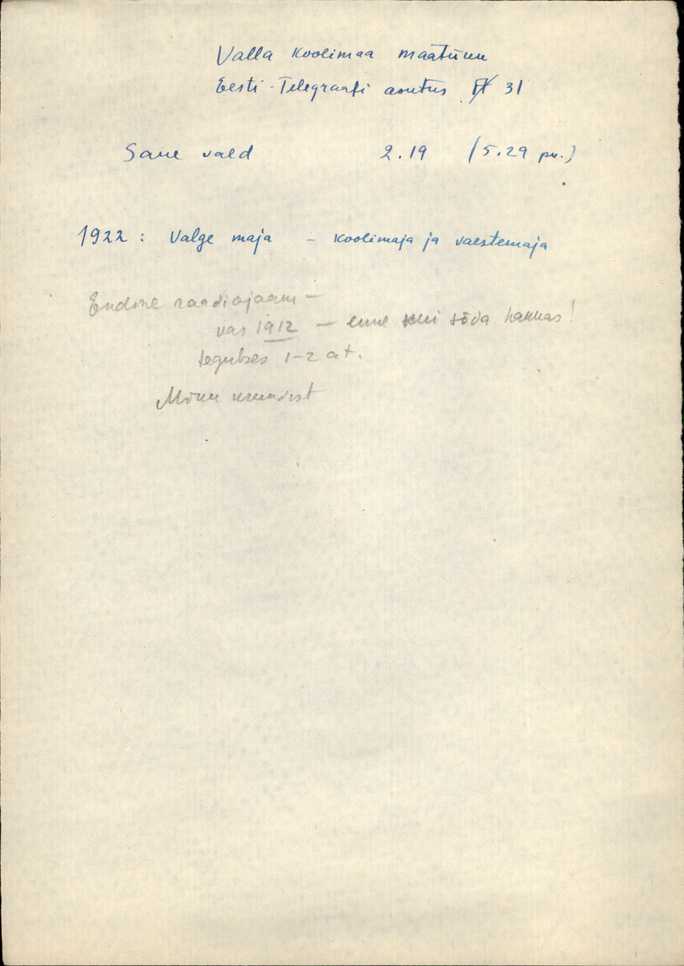 Valla koolimaa maatükk
Eesti-Telegraafi asutus 31
Saue vald 2.19 (5.29 pn.)
1922 : Valge maja – koolimaja ja vaestemaja
Endine raadiojaam –
vas 1912 – enne kui sõda hakkas!
tegutses 1–2 a+.
Minu